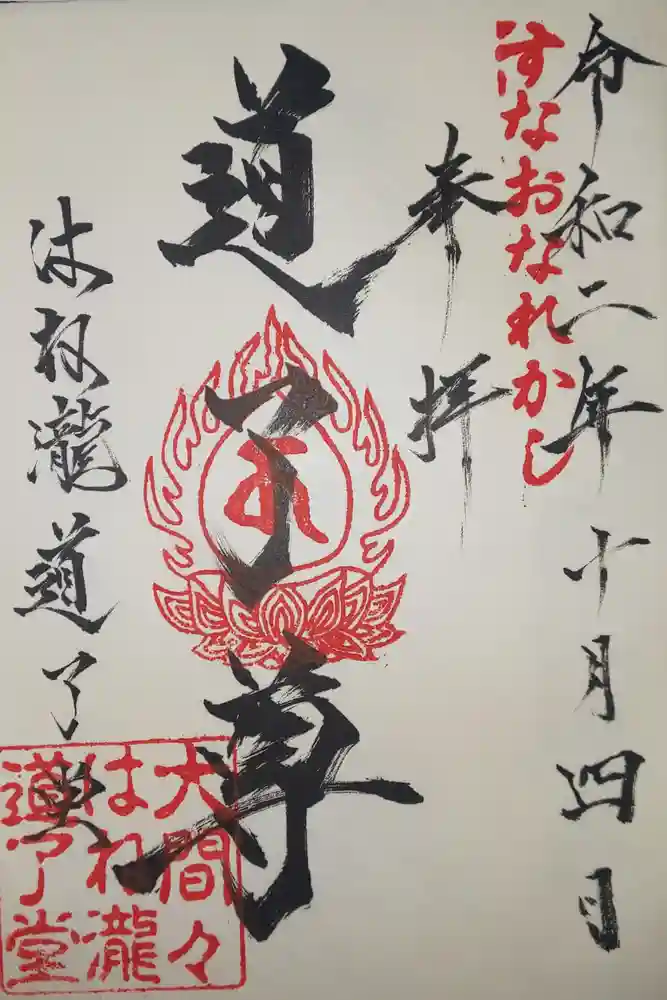 令和二年十月四日
すなおなれかし
奉拝
道了尊
はね瀧道了堂
大間々
はね瀧
道了堂